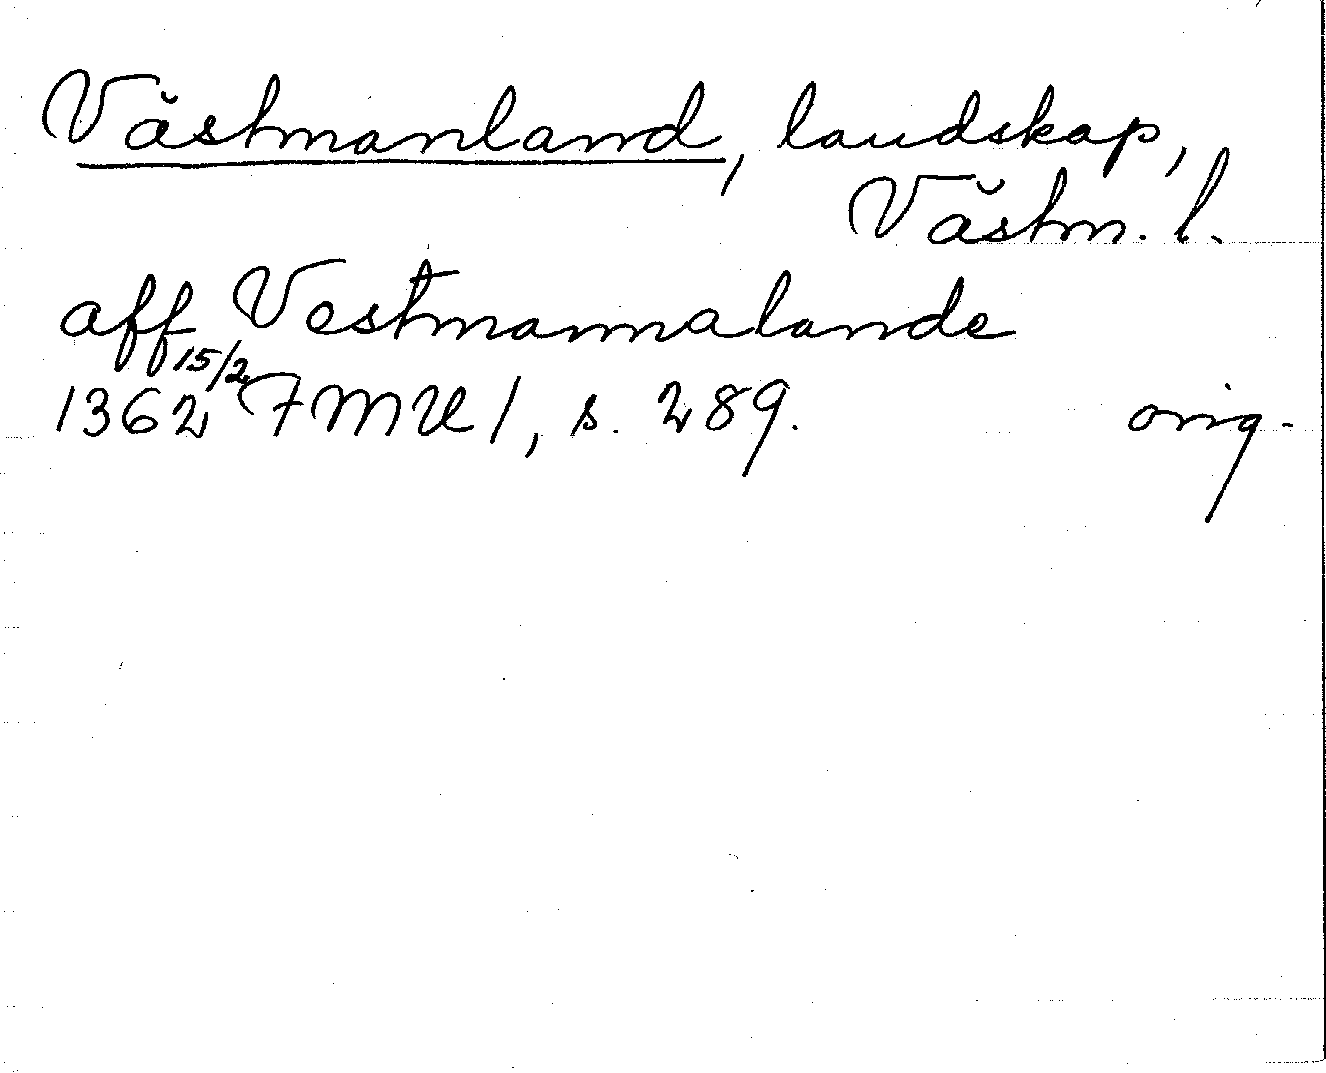 Västmanland, landskap,
Västm. l.
aff Vestmannalande
15/2
1362 FMU 1, s. 289. orig.